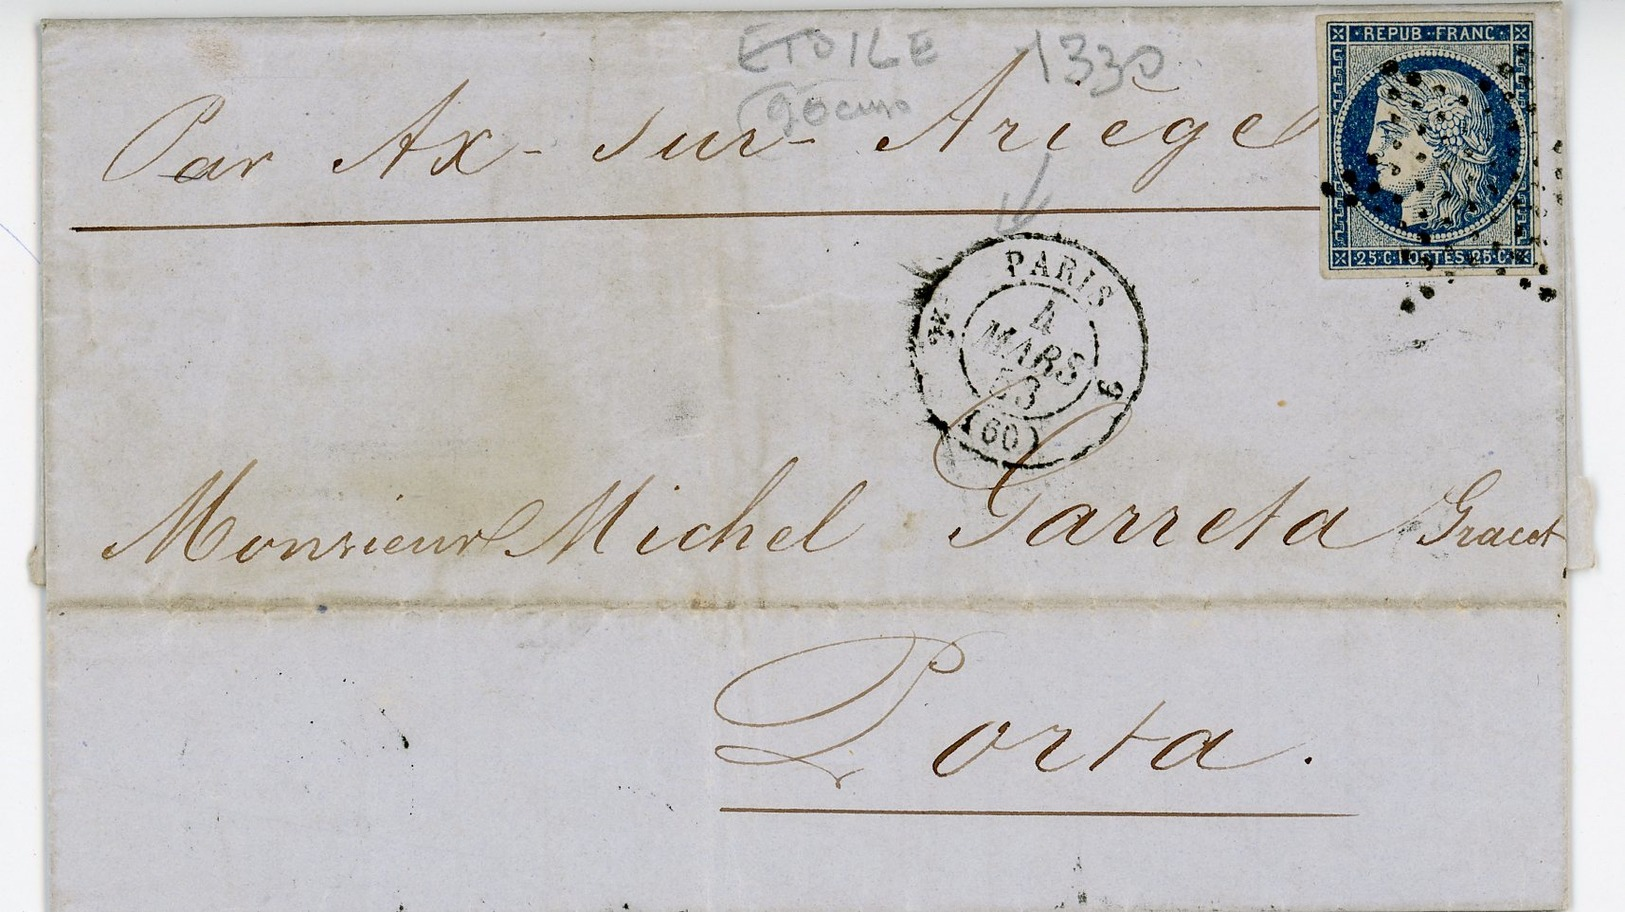 ETOILE 1330
REPUB·FRANC·
Par Ax-sur-Ariège
25·C·POSTES·25·C·
PARIS
4
MARS
53
(60)
Monsieur Michel Garreta Gracet
Porta.